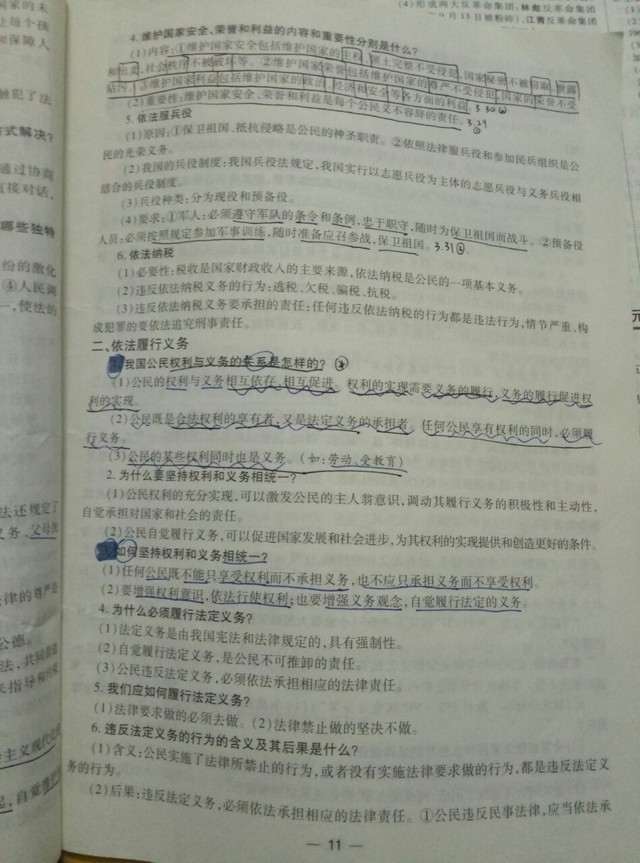 (4)形成两大反革命集团:林彪反革命集团
月13日被粉碎),江青反革命集团
4.维护国家安全、荣誉和利益的内容和重要性分别是什么?
(1)内容:①维护国家安全包括维护国家的主权、领土完整不受侵犯,国家秘密不被窃取、泄露
和出卖,社会秩序不被破坏等。②维护国家荣誉包括维护国家的尊严不受侵犯,国家的荣誉不受
玷污。③维护国家利益包括维护国家的政治、经济和安全等各方面的利益。3.30
(2)重要性:维护国家安全、荣誉和利益是每个公民义不容辞的责任。3.29
5.依法服兵役
(1)原因:①保卫祖国、抵抗侵略是公民的神圣职责。②依照法律服兵役和参加民兵组织是公
民的光荣义务。
(2)我国的兵役制度:我国兵役法规定,我国实行以志愿兵役为主体的志愿兵役与义务兵役相
结合的兵役制度。
(3)兵役种类:分为现役和预备役。
(4)要求:①军人:必须遵守军队的条令和条例,忠于职守,随时为保卫祖国而战斗。②预备役
人员:必须按照规定参加军事训练,随时准备应召参战,保卫祖国。3.31
6.依法纳税
(1)必要性:税收是国家财政收入的主要来源,依法纳税是公民的一项基本义务。
(2)违反依法纳税义务的行为:逃税、欠税、骗税、抗税。
(3)违反依法纳税义务要承担的责任:任何违反依法纳税的行为都是违法行为,情节严重、构
成犯罪的要依法追究刑事责任。
二、依法履行义务
我国公民权利与义务的关系是怎样的?
(1)公民的权利与义务相互依存、相互促进。权利的实现需要义务的履行,义务的履行促进权
利的实现。
(2)公民既是合法权利的享有者,又是法定义务的承担者。任何公民享有权利的同时,必须履
行义务。
(3)公民的某些权利同时也是义务。(如:劳动、受教育)
2.为什么要坚持权利和义务相统一?
(1)公民权利的充分实现,可以激发公民的主人翁意识,调动其履行义务的积极性和主动性,
自觉承担对国家和社会的责任。
(2)公民自觉履行义务,可以促进国家发展和社会进步,为其权利的实现提供和创造更好的条件。
如何坚持权利和义务相统一?
(1)任何公民既不能只享受权利而不承担义务,也不应只承担义务而不享受权利。
(2)要增强权利意识,依法行使权利;也要增强义务观念,自觉履行法定的义务。
4.为什么必须履行法定义务?
(1)法定义务是由我国宪法和法律规定的,具有强制性。
(2)自觉履行法定义务,是公民不可推卸的责任。
(3)公民违反法定义务,必须依法承担相应的法律责任。
5.我们应如何履行法定义务?
(1)法律要求做的必须去做。(2)法律禁止做的坚决不做。
6.违反法定义务的行为的含义及其后果是什么?
(1)含义:公民实施了法律所禁止的行为,或者没有实施法律要求做的行为,都是违反法定义
务的行为。
(2)后果:违反法定义务,必须依法承担相应的法律责任。①公民违反民事法律,应当依法承
— 11 —